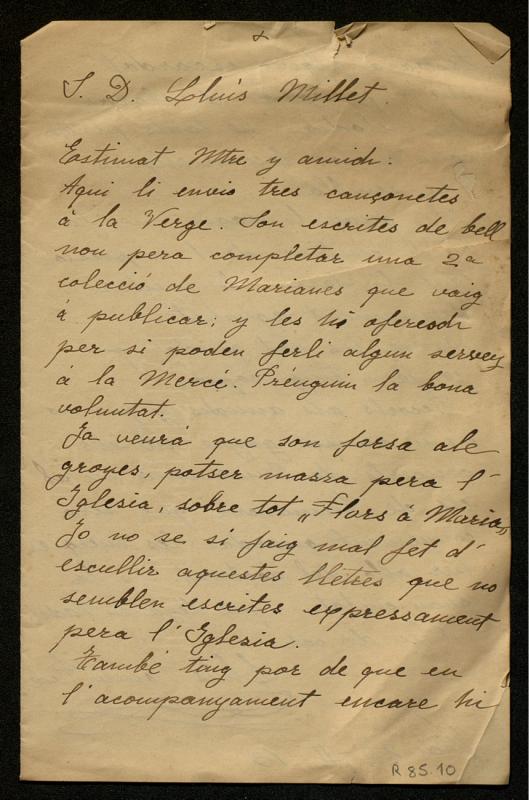 S. D. Lluis Millet.
Estimat Mtre y amich.
Aqui li envio tres cançonetes
á la Verge. Son escrites de bell
nou pera completar una 2ª
colecció de Marianes que vaig
á publicar; y les hi oferesch
per si poden ferli algun servey
á la Mercé. Prénguin la bona
voluntat.
Ja veurá que son forsa ale
groyes, potser massa pera l'
Iglesia, sobre tot „Flors á Maria„
Jo no se si faig mal fet d'
escullir aquestes lletres que no
semblen escrites expressament
pera l'Iglesia.
També ting por de que en
l'acompanyament encare hi
R 85.10